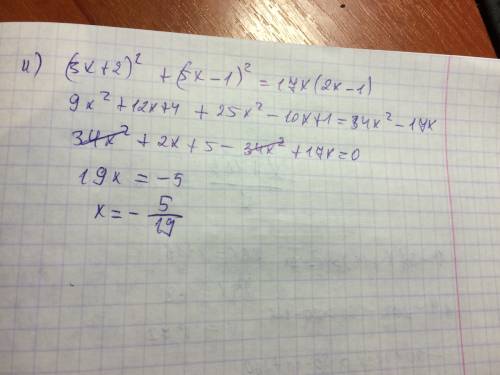 и) (3x+2)² + (5x-1)² = 17x(2x-1)
9x²+12x+4 + 25x²-10x+1=34x²-17x
34x² + 2x + 5 - 34x² + 17x=0
19x = -5
x = - 5/19